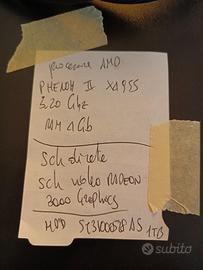 processore AMD
PHENOM II X4 955
3,20 Ghz
RAM 4 Gb
Sch direte
Sch video RADEON
3000 Graphics
HDD ST31000528AS 1TB
subito